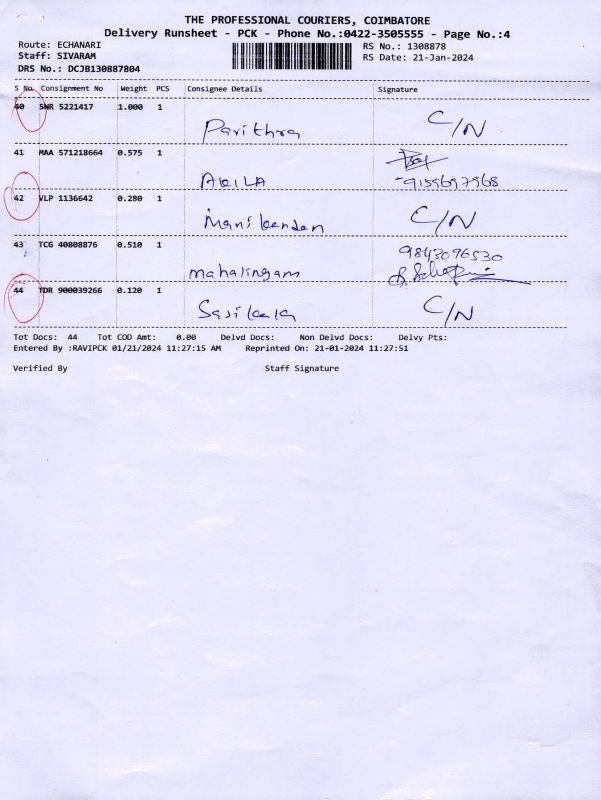 THE PROFESSIONAL COURIERS, COIMBATORE
Delivery Runsheet - PCK - Phone No.:0422-3505555 - Page No.:4
Route: ECHANARI RS No.: 1308878
Staff: SIVARAM RS Date: 21-Jan-2024
DRS No.: DCJB130887804
S No. Consignment No Weight PCS Consignee Details Signature
40 SNR 5221417 1.000 1
Pavithra C/N
41 MAA 571218664 0.575 1
AKILA 9155697568
42 VLP 1136642 0.280 1
Manikandan C/N
43 TCG 40808876 0.510 1 9843096530
mahalingam
44 TDR 900039266 0.120 1
Sasikala C/N
Tot Docs: 44 Tot COD Amt: 0.00 Delvd Docs: Non Delvd Docs: Delvy Pts:
Entered By :RAVIPCK 01/21/2024 11:27:15 AM Reprinted On: 21-01-2024 11:27:51
Verified By Staff Signature